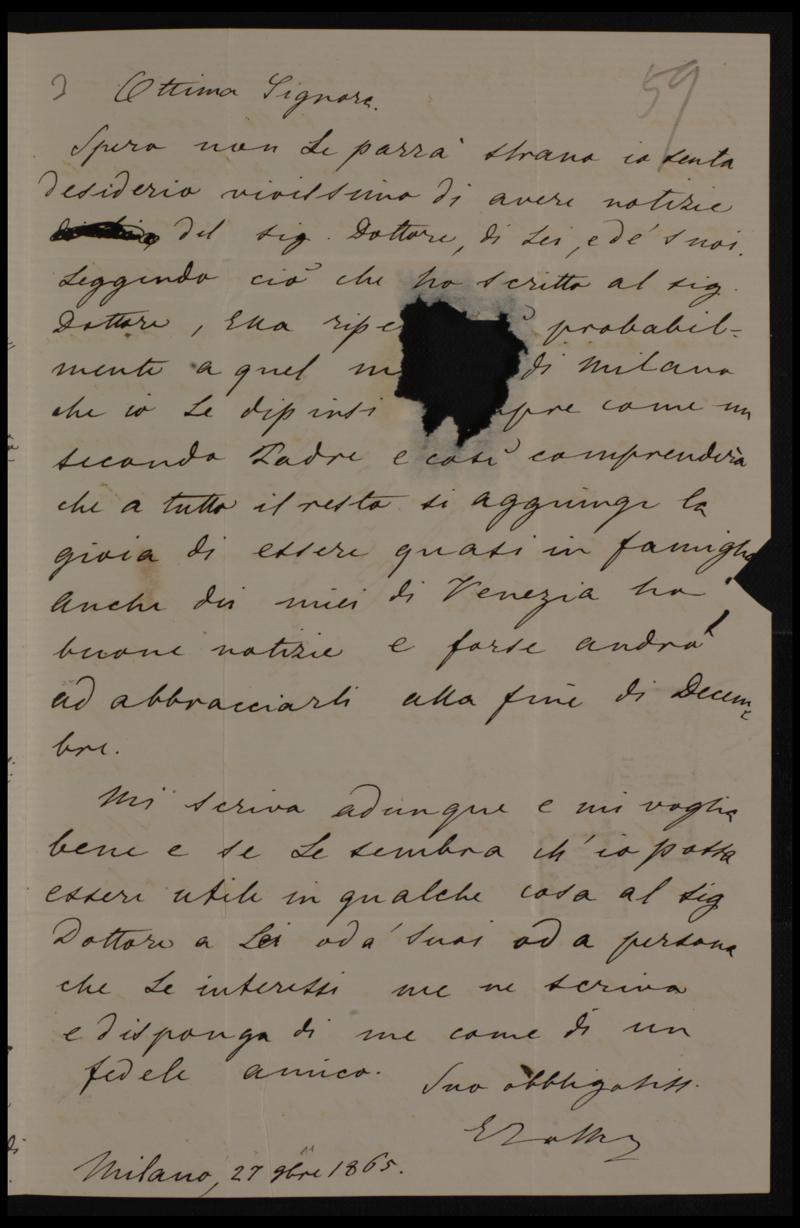 59
Ottima Signora.
Spero non Le parrà strano io senta
desiderio vivissimo di avere notizie
del sig. Dottore, di Lei, e de' suoi.
Leggendo ciò che ho scritto al sig.
Dottore, Ella ripe probabil-
mente a quel m di Milano
che io Le dipinsi pre come un
secondo Padre e così comprenderà
che a tutto il resto si aggiunge la
gioia di essere quasi in famiglia.
Anche dei miei di Venezia ho
buone notizie e forse andrò
ad abbracciarli alla fine di Decem-
bre.
Mi scriva adunque e mi voglia
bene e se Le sembra ch'io possa
essere utile in qualche cosa al sig
Dottore a Lei od a' suoi od a persona
che Le interessi me ne scriva
e disponga di me come di un
fedele amico.
Suo obbligatiss.
Milano, 27 9bre 1865.